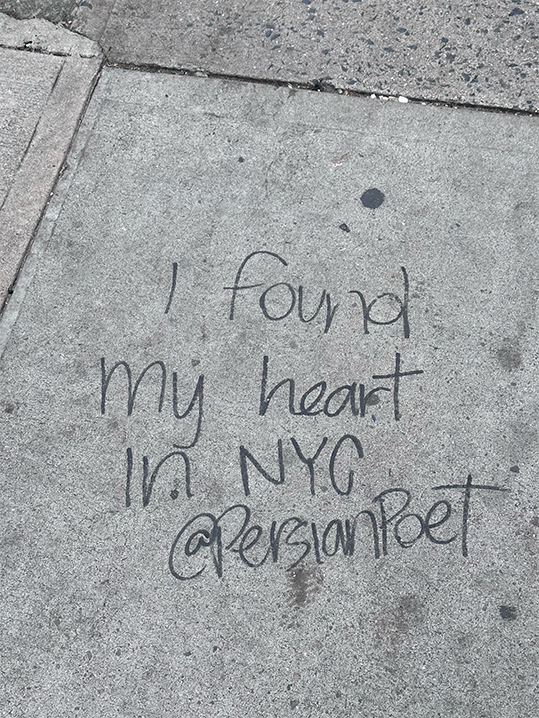 I found
my heart
In NYC
@PersianPoet